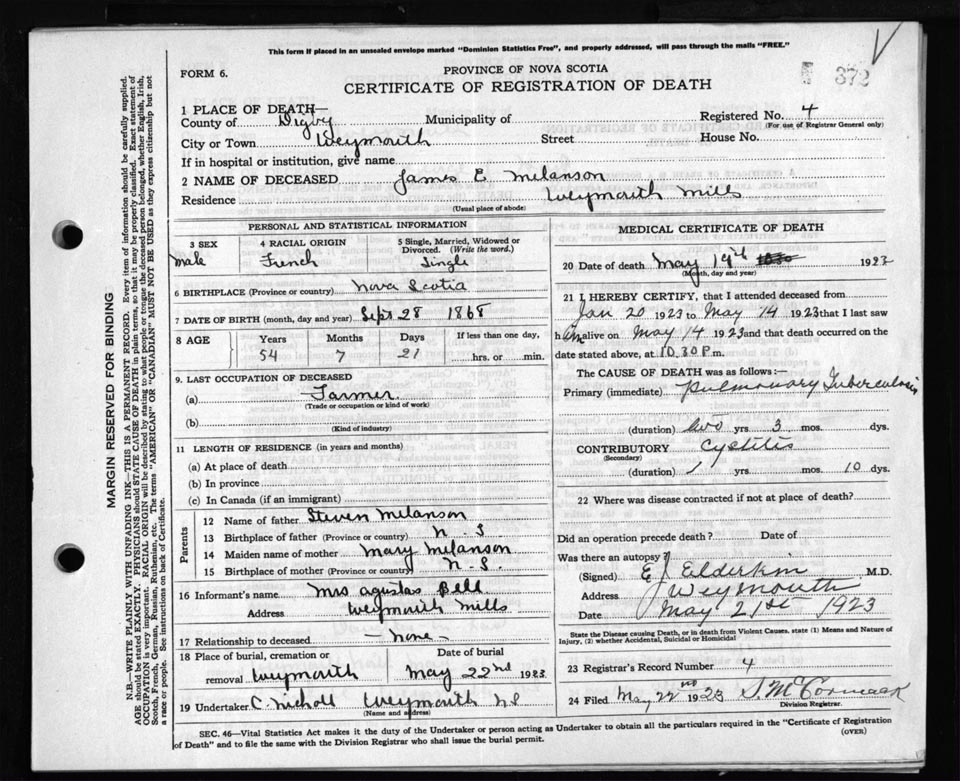 This form if placed in an unsealed envelope marked "Dominion Statistics Free", and properly addressed, will pass through the mails "FREE."
FORM 6.
PROVINCE OF NOVA SCOTIA
372
CERTIFICATE OF REGISTRATION OF DEATH
1 PLACE OF DEATH—
County of Digby Municipality of Registered No. 4
(For use of Registrar General only)
City or Town Weymouth Street House No.
If in hospital or institution, give name
2 NAME OF DECEASED James E Melanson
Residence Weymouth Mills
(Usual place of abode)
PERSONAL AND STATISTICAL INFORMATION
3 SEX 4 RACIAL ORIGIN 5 Single, Married, Widowed or Divorced. (Write the word.)
Male French Single
6 BIRTHPLACE (Province or country) Nova Scotia
7 DATE OF BIRTH (month, day and year) Sept 28 1868
8 AGE Years Months Days If less than one day,
54 7 21 hrs. or min.
9. LAST OCCUPATION OF DECEASED
(a) Farmer
(Trade or occupation or kind of work)
(b)
(Kind of industry)
11 LENGTH OF RESIDENCE (in years and months)
(a) At place of death
(b) In province
(c) In Canada (if an immigrant)
Parents
12 Name of father Steven Melanson
13 Birthplace of father (Province or country) N. S.
14 Maiden name of mother Mary Melanson
15 Birthplace of mother (Province or country) N. S.
16 Informant's name Mrs Agustas Bell
Address Weymouth Mills
17 Relationship to deceased — None —
18 Place of burial, cremation or removal Weymouth Date of burial May 22nd 1923
19 Undertaker C. Nicholl Weymouth NS
(Name and address)
MEDICAL CERTIFICATE OF DEATH
20 Date of death May 19th 1923
(Month, day and year)
21 I HEREBY CERTIFY, that I attended deceased from
Jan 20 1923 to May 14 1923 that I last saw
him alive on May 14 1923 and that death occurred on the
date stated above, at 10.30 P.m.
The CAUSE OF DEATH was as follows:—
Primary (immediate) Pulmonary Tuberculosis
(duration) two yrs. 3 mos. dys.
CONTRIBUTORY Cystitis
(Secondary)
(duration) 1 yrs. mos. 10 dys.
22 Where was disease contracted if not at place of death?
Did an operation precede death? Date of
Was there an autopsy?
(Signed) E J Elderkin M.D.
Address Weymouth
Date May 21st 1923
State the Disease causing Death, or in death from Violent Causes, state (1) Means and Nature of Injury, (2) whether Accidental, Suicidal or Homicidal
23 Registrar's Record Number 4
24 Filed May 22nd 1923 S. McCormack
Division Registrar.
SEC. 46—Vital Statistics Act makes it the duty of the Undertaker or person acting as Undertaker to obtain all the particulars required in the "Certificate of Registration of Death" and to file the same with the Division Registrar who shall issue the burial permit.
(OVER)
MARGIN RESERVED FOR BINDING
N.B.—WRITE PLAINLY WITH UNFADING INK—THIS IS A PERMANENT RECORD. Every item of information should be carefully supplied.
AGE should be stated EXACTLY. PHYSICIANS should STATE CAUSE OF DEATH in plain terms, so that it may be properly classified. Exact statement of
OCCUPATION is very important. RACIAL ORIGIN will be described by stating to what people or tongue the deceased person belonged, whether English, Irish,
Scotch, French, German, Russian, Ruthenian, etc. The terms "AMERICAN" OR "CANADIAN" MUST NOT BE USED as they express citizenship but not
a race or people. See instructions on back of Certificate.